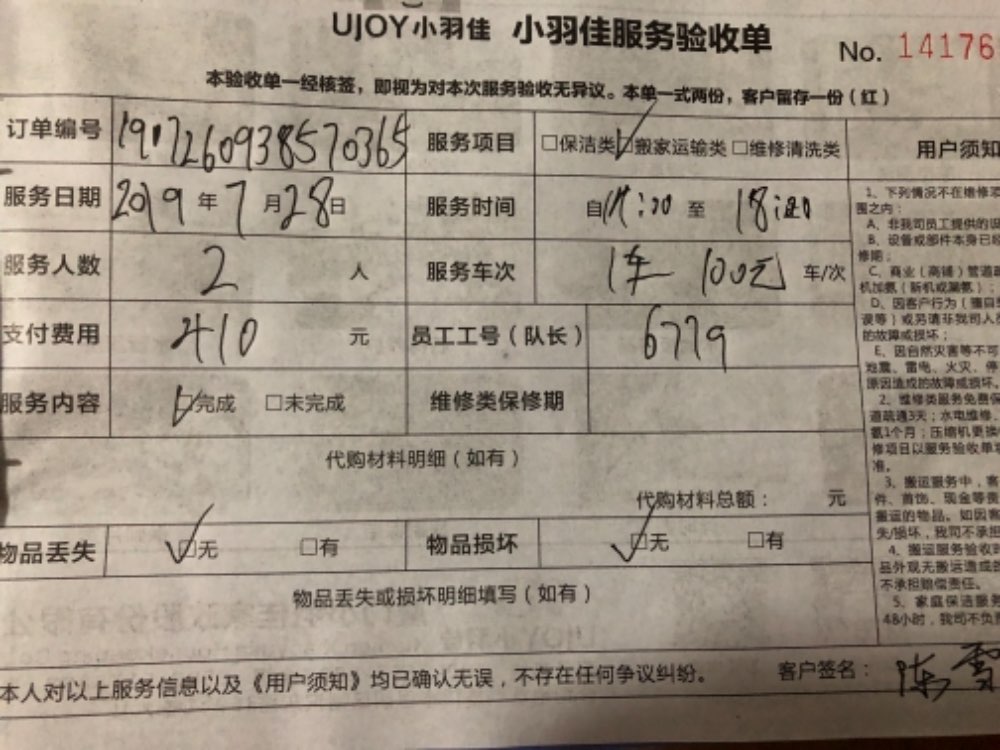 UJOY小羽佳 小羽佳服务验收单
No. 14176
本验收单一经核签，即视为对本次服务验收无异议。本单一式两份，客户留存一份（红）
订单编号 1907260938570365 服务项目 □保洁类 ☑搬家运输类 □维修清洗类
服务日期 2019 年 7 月 28 日 服务时间 自 至 18:
服务人数 2 人 服务车次 1车 100元 车/次
支付费用 410 元 员工工号（队长） 6779
服务内容 ☑完成 □未完成 维修类保修期
代购材料明细（如有）
代购材料总额： 元
物品丢失 ☑无 □有 物品损坏 ☑无 □有
物品丢失或损坏明细填写（如有）
本人对以上服务信息以及《用户须知》均已确认无误，不存在任何争议纠纷。
客户签名： 陈雪
用户须知
1、下列情况不在维修
围之内：
A、非我司员工提供的
B、设备或部件本身已
修期；
C、商业（商铺）管道
机加氨（新机或漏氨）；
D、因客户行为（擅自
误等）或另请非我司人
的故障或损坏；
E、因自然灾害等不可
地震、雷电、火灾、停
原因造成的故障或损坏。
2、维修类服务免费保
道疏通3天；水电维修、
氨1个月；压缩机更换
修项目以服务验收单
准。
3、搬运服务中，客
件、首饰、现金等贵
搬运的物品。如因客
失/损坏，我司不承担
4、搬运服务验收
品外观无搬运造成的
不承担赔偿责任。
5、家庭保洁服务
48小时，我司不负